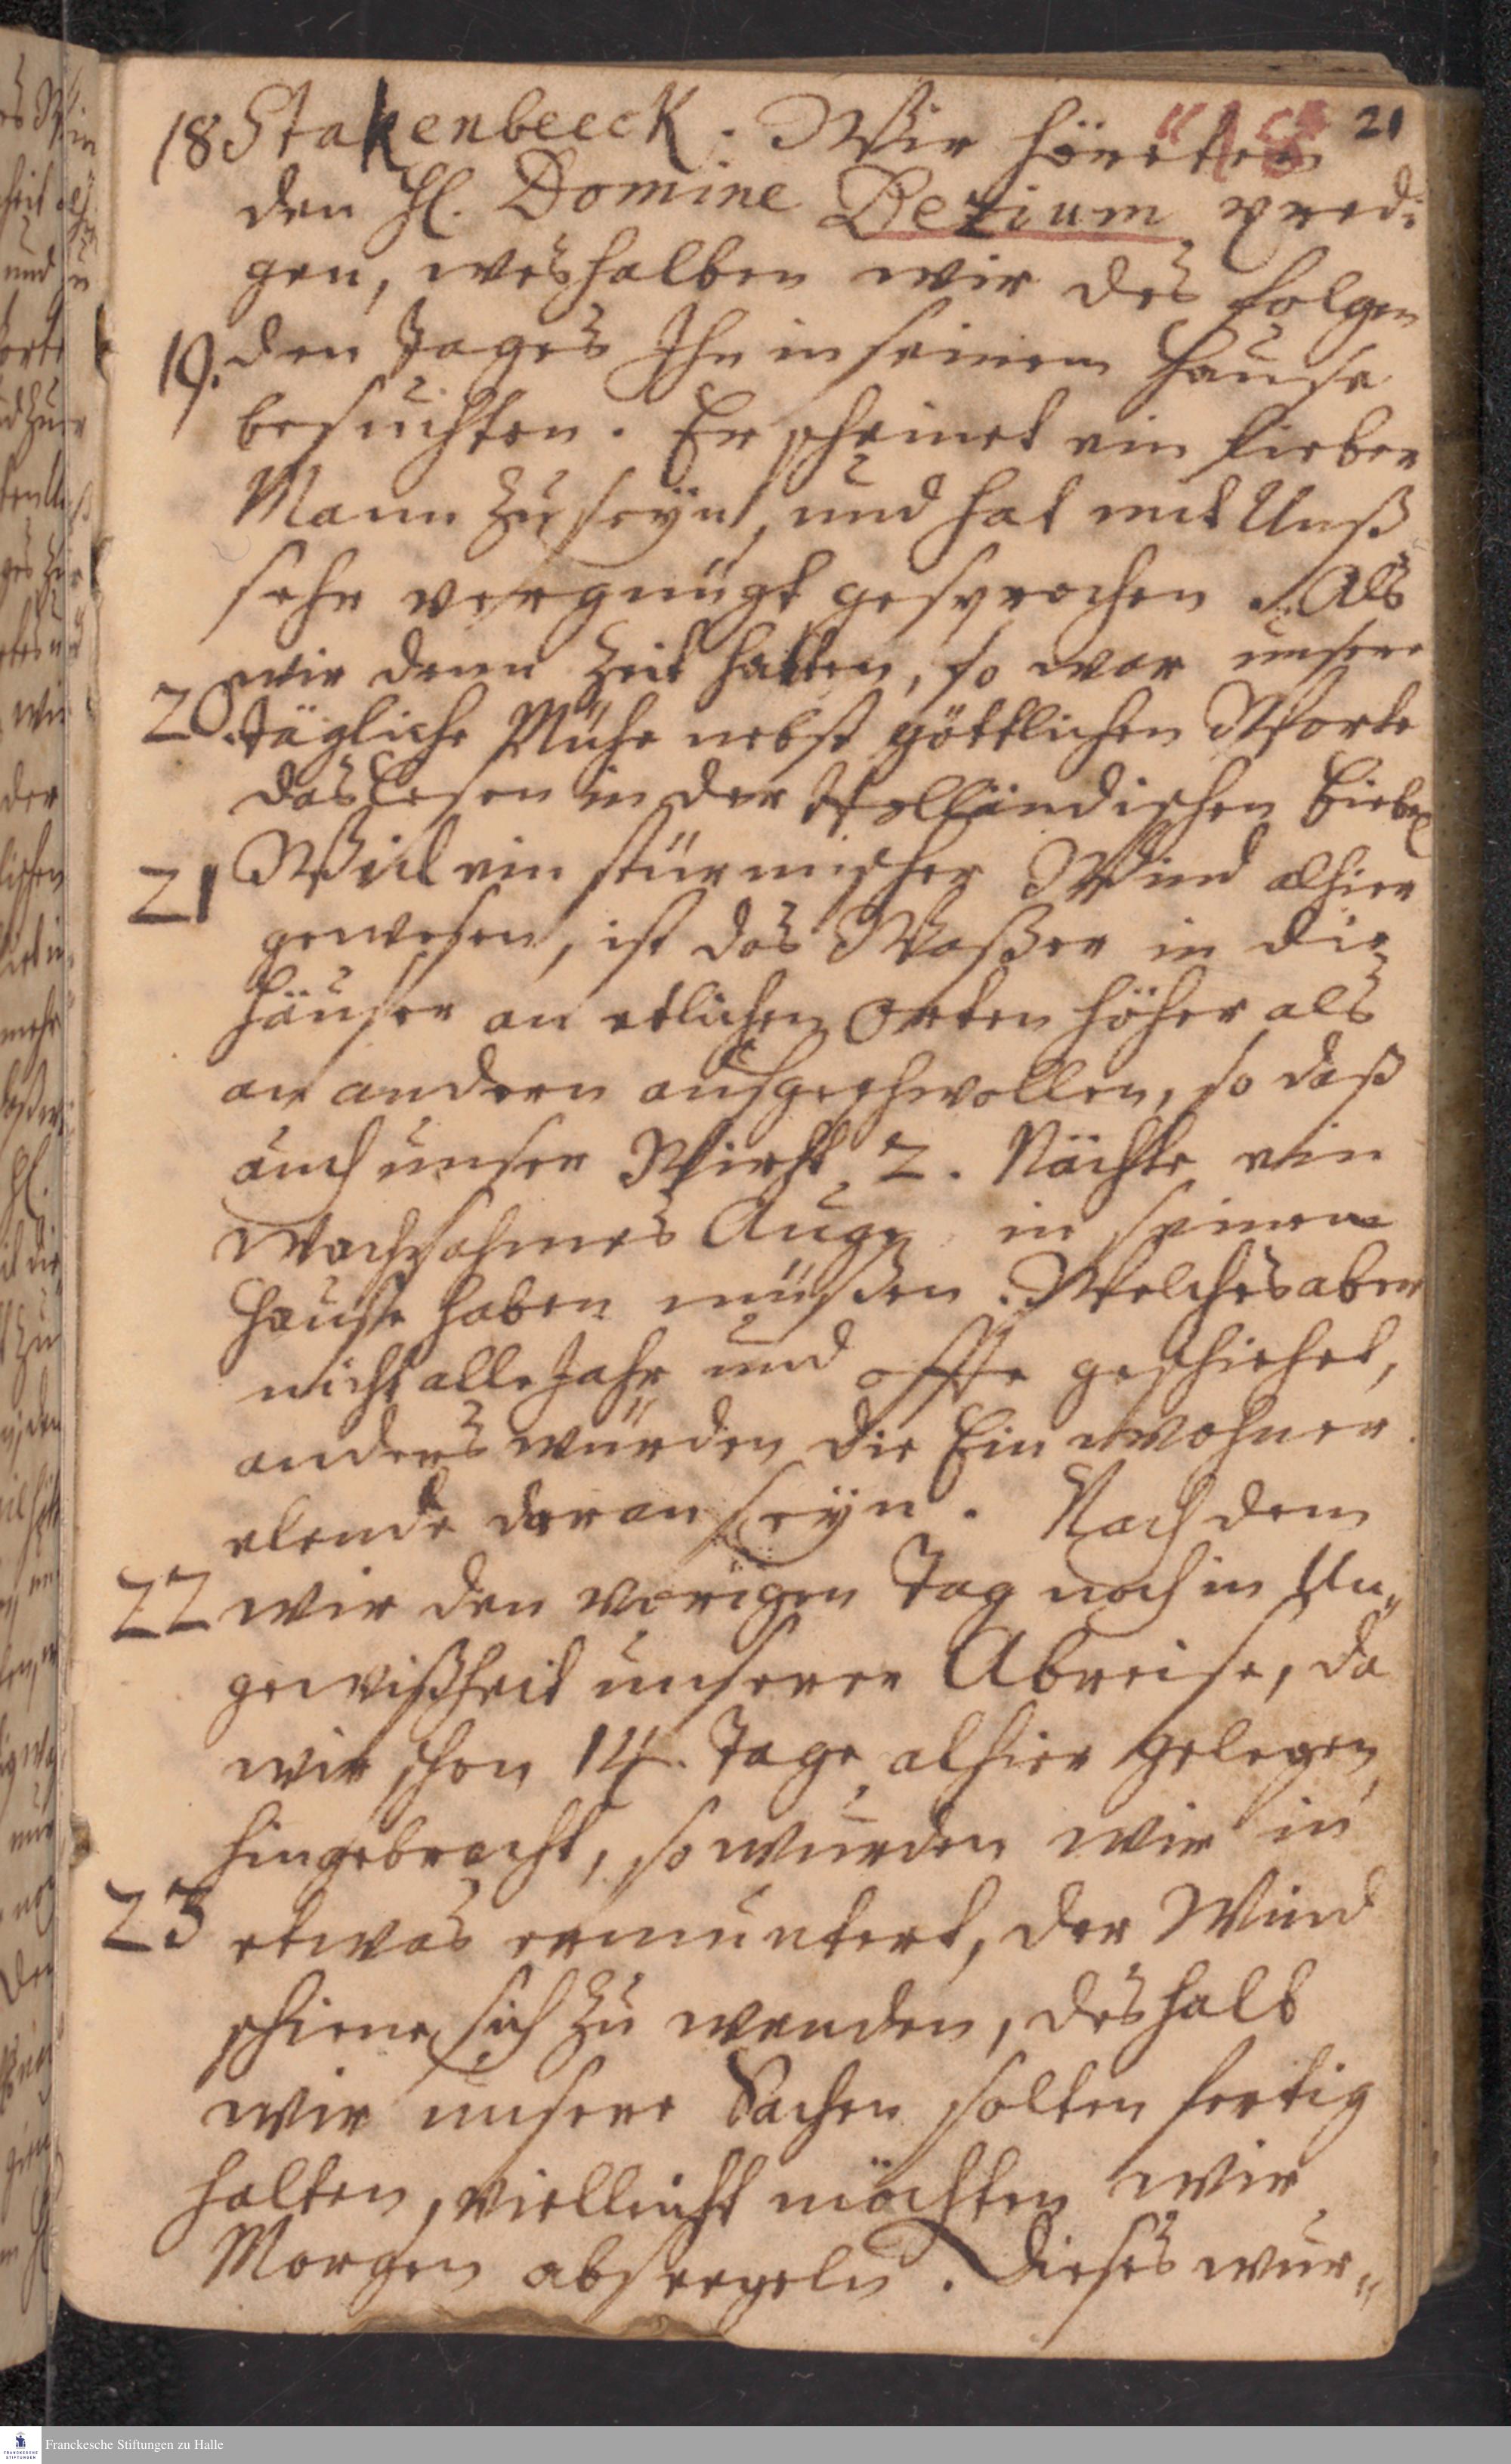 "18 21
18 Stakenbeeck. Wir höreten
den H. Domine Dezium predi
gen, weshalben wir des folgen
19. den Tages Ihn in seinem Hause
besuchten. Er scheinet ein lieber
Mann zu seyn, und hat mit Unß
sehr vergnügt gesprochen. Als
wir denn Zeit hatten, so war unsere
20. tägliche Mühe nebst göttlichen Worte
das Lesen in der Holländischen Biebel
21 Weil ein stürmischer Wind alhier
gewesen, ist das Waßer in die
Häuser an etlichen Orten höher als
an andern aufgeschwollen, so daß
auch unser Wirth 2. Nächte ein
wachsahmes Auge in seinem
Hause haben müßen. Welches aber
nicht alle Jahr und offte geschiehet,
anders würden die Einwohner
elende daran seyn. Nach dem
22 wir den vorigen Tag noch in Un„
gewißheit unserer Abreise, da
wir schon 14. Tage alhier gelegen,
hingebracht, so wurden wir in
23 etwas ermuntert, der Wind
schiene sich zu wenden, deshalb
wir unsere Sachen solten fertig
halten, vielleicht möchten wir
Morgen absegeln. Dieses wur„
Franckesche Stiftungen zu Halle